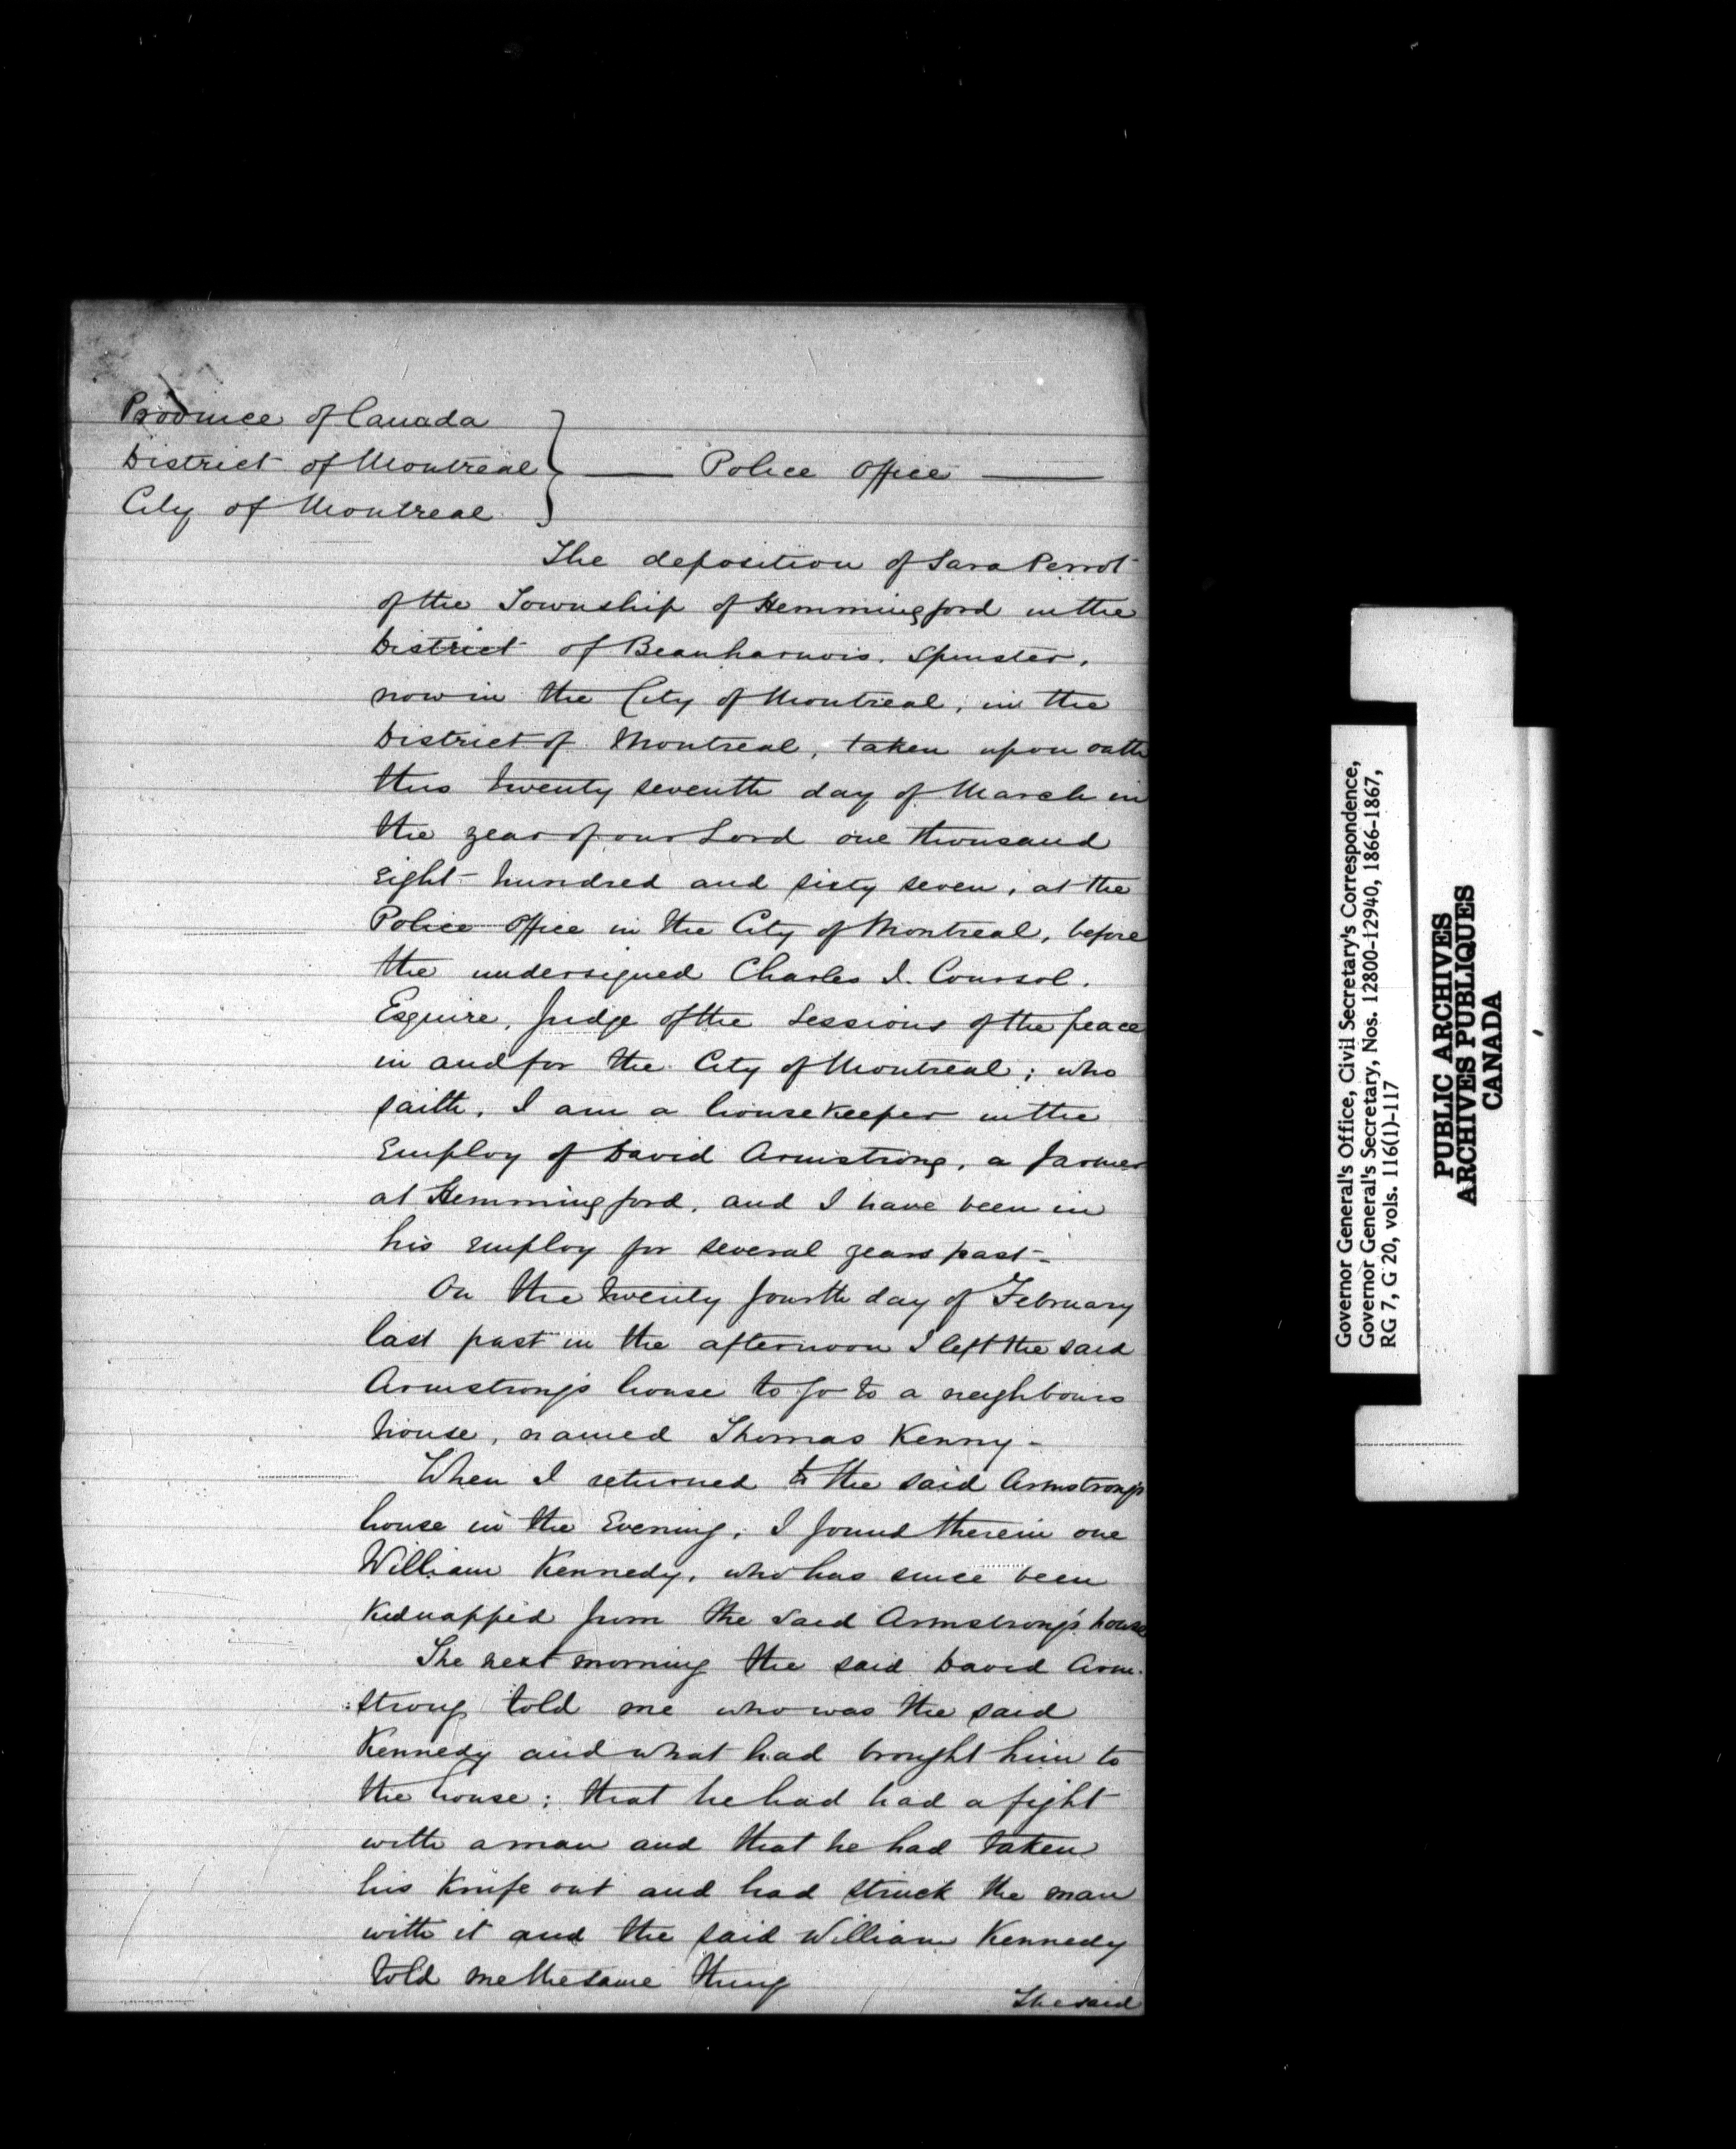 Province of Canada
District of Montreal
City of Montreal
} —— Police Office ——
The deposition of Sara Perrot
of the Township of Hemmingford in the
District of Beauharnois. Spinster,
now in the City of Montreal, in the
District of Montreal, taken upon oath
this twenty seventh day of March in
the year of our Lord one thousand
eight hundred and sixty seven, at the
Police Office in the City of Montreal, before
the undersigned Charles J. Coursol.
Esquire, Judge of the Sessions of the peace
in and for the City of Montreal; who
saith, I am a housekeeper in the
Employ of David Armstrong, a farmer
at Hemmingford, and I have been in
his employ for several years past-
On the twenty fourth day of February
last past in the afternoon I left the said
Armstrong's house to go to a neighbours
house, named Thomas Kenny-
When I returned to the said Armstrong's
house in the Evening, I found therein one
William Kennedy, who has since been
Kidnapped from the said Armstrong's house
The next morning the said David Arm-
:strong told me who was the said
Kennedy and what had brought him to
the house; that he had had a fight
with a man and that he had taken
his Knife out and had struck the man
with it and the said William Kennedy
told me the same thing
The said
Governor General's Office, Civil Secretary's Correspondence,
Governor General's Secretary, Nos. 12800-12940, 1866-1867,
RG 7, G 20, vols. 116(1)-117
PUBLIC ARCHIVES
ARCHIVES PUBLIQUES
CANADA